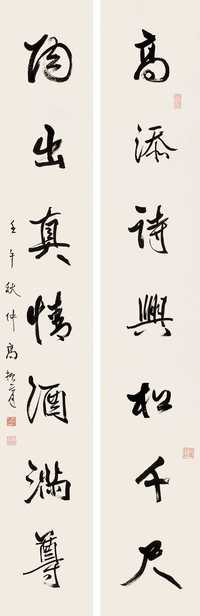 高添詩興松千尺
陶出真情酒滿尊
壬午秋仲高